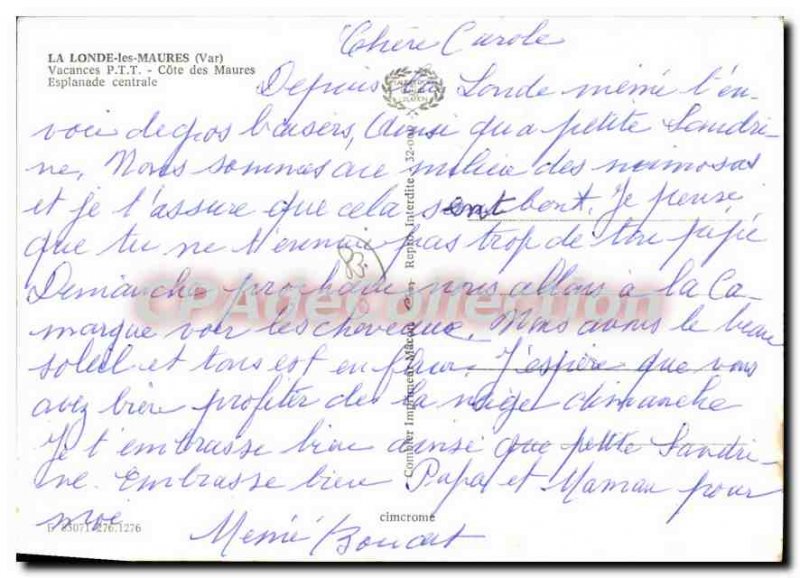 Chère Carole
LA LONDE-les-MAURES (Var)
Vacances P.T.T. - Côte des Maures
Esplanade centrale
Depuis La Londe mémé t'en
voie de gros baisers, Ainsi qu'a petite Sandri
ne, Nous sommes au milieu des mimosas
et je t'assure que cela sent bont. Je pense
que tu ne t'ennuie pas trop de ton pépé
Demanche prochain nous allons à la Ca
margue voir les cheveaux. Nous avons le beau
soleil et tous est en fleur. J'espère que vous
avez bien profiter de la neige dimanche
Je t'embrasse bien ainsi que petite Sandri
ne. Embrasse bien Papa et Maman pour
moi
Mémé
83
Combier Imprimeur Mâcon
Repro. Interdite
CPAdeCollection
cimcrome
276.1276